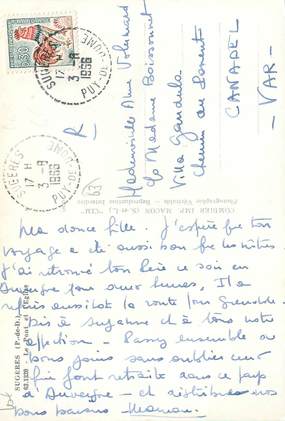 0,30
SUGERES
17 H
3 -8
1966
PUY-DE-DOME
SUGERES
17 H
3 -8
1966
PUY-DE-DOME
R
Mademoiselle Aline
c/o Madame Boissonnet
Villa Gandula
Chemin du
CANADEL
VAR
63
COMBIER IMP. MACON (S.-et-L.) "CIM"
Photographie Véritable - Reproduction Interdite
SUGERES (P.-de-D.)
Le Pont et l'Eglise
Ma douce fille. J'espère que ton
voyage a été aussi bon que les nôtres
J'ai retrouvé ton père ce soir en
Auvergne pour deux heures, Il a
repris aussitôt la route pour Grenoble
Dis à Suzanne et à tous notre
affection - Passez ensemble de
bons jours sans oublier ceux
qui font retraite dans ce pays
d'Auvergne - et distribue nos
bons baisers Maman